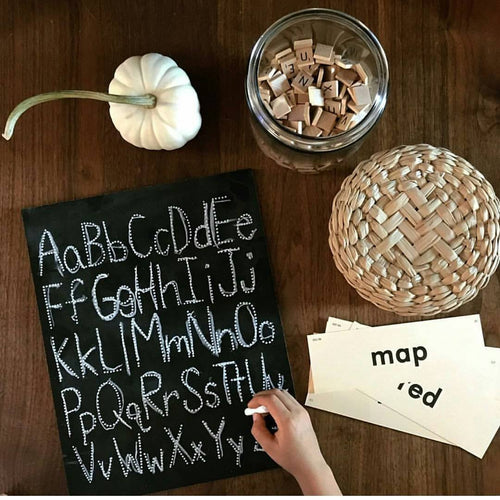 AaBbCcDdEe
FfGgHhIiJj
KkLlMmNnOo
PpQqRrSsTtUu
VvWwXxYyZ
map
red